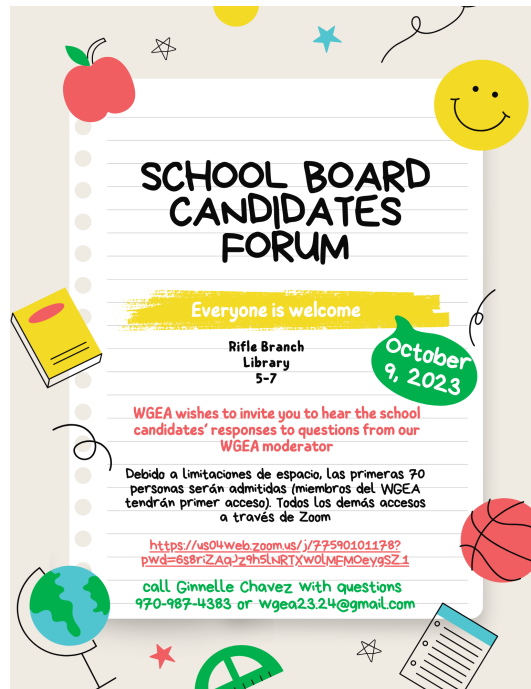 SCHOOL BOARD
CANDIDATES
FORUM
Everyone is welcome
October
9, 2023
Rifle Branch
Library
5-7
WGEA wishes to invite you to hear the school
candidates' responses to questions from our
WGEA moderator
Debido a limitaciones de espacio, las primeras 70
personas serán admitidas (miembros del WGEA
tendrán primer acceso). Todos los demás accesos
a través de Zoom
https://us04web.zoom.us/j/77590101178?
pwd=6s8riZAqJz9h5lNRTXW0lMFMOeygSZ.1
call Ginnelle Chavez with questions
970-987-4383 or wgea23.24@gmail.com